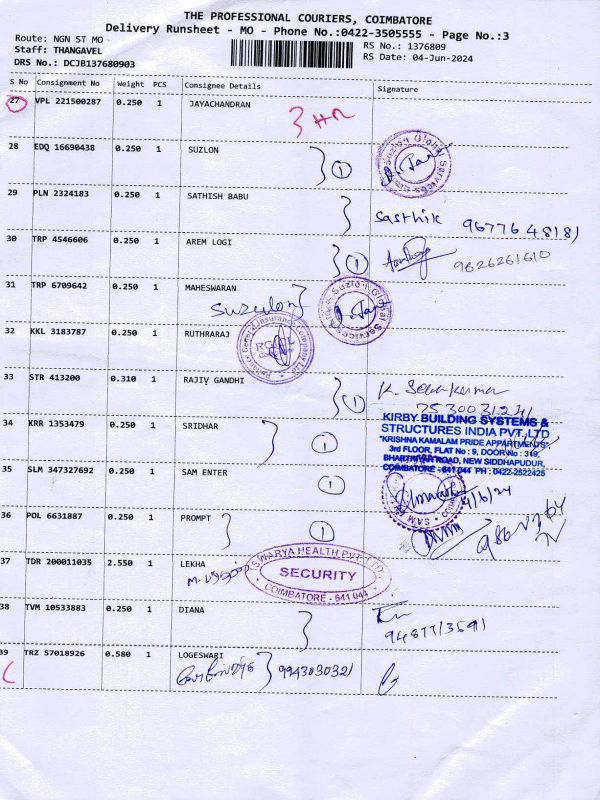 THE PROFESSIONAL COURIERS, COIMBATORE
Delivery Runsheet - MO - Phone No.:0422-3505555 - Page No.:3
Route: NGN ST MO
RS No.: 1376809
Staff: THANGAVEL
RS Date: 04-Jun-2024
DRS No.: DCJB137680903
S No Consignment No Weight PCS Consignee Details Signature
27 VPL 221500287 0.250 1 JAYACHANDRAN
HR
28 EDQ 16690438 0.250 1 SUZLON
1
Suzlon Global Services
29 PLN 2324183 0.250 1 SATHISH BABU
Sasthik 9677648181
30 TRP 4546606 0.250 1 AREM LOGI
1
9626261610
31 TRP 6709642 0.250 1 MAHESWARAN
Suzulon
Suzlon Global Services
32 KKL 3183787 0.250 1 RUTHRARAJ
General Insurance Company Ltd
33 STR 413200 0.310 1 RAJIV GANDHI
1
K. Selvakumar
7530031241
34 KRR 1353479 0.250 1 SRIDHAR
1
KIRBY BUILDING SYSTEMS &
STRUCTURES INDIA PVT. LTD
"KRISHNA KAMALAM PRIDE APPARTMENTS",
3rd FLOOR, FLAT No : 9, DOOR No : 319,
BHARTHIYAR ROAD, NEW SIDDHAPUDUR,
COIMBATORE - 641 044 PH : 0422-2522425
35 SLM 347327692 0.250 1 SAM ENTER
1
SAM
4/6/24
36 POL 6631887 0.250 1 PROMPT
1
37 TDR 200011035 2.550 1 LEKHA
ISWARYA HEALTH PVT. LTD.,
SECURITY
COIMBATORE - 641 044
38 TVM 10533883 0.250 1 DIANA
9487713591
39 TRZ 57018926 0.580 1 LOGESWARI
9943030321